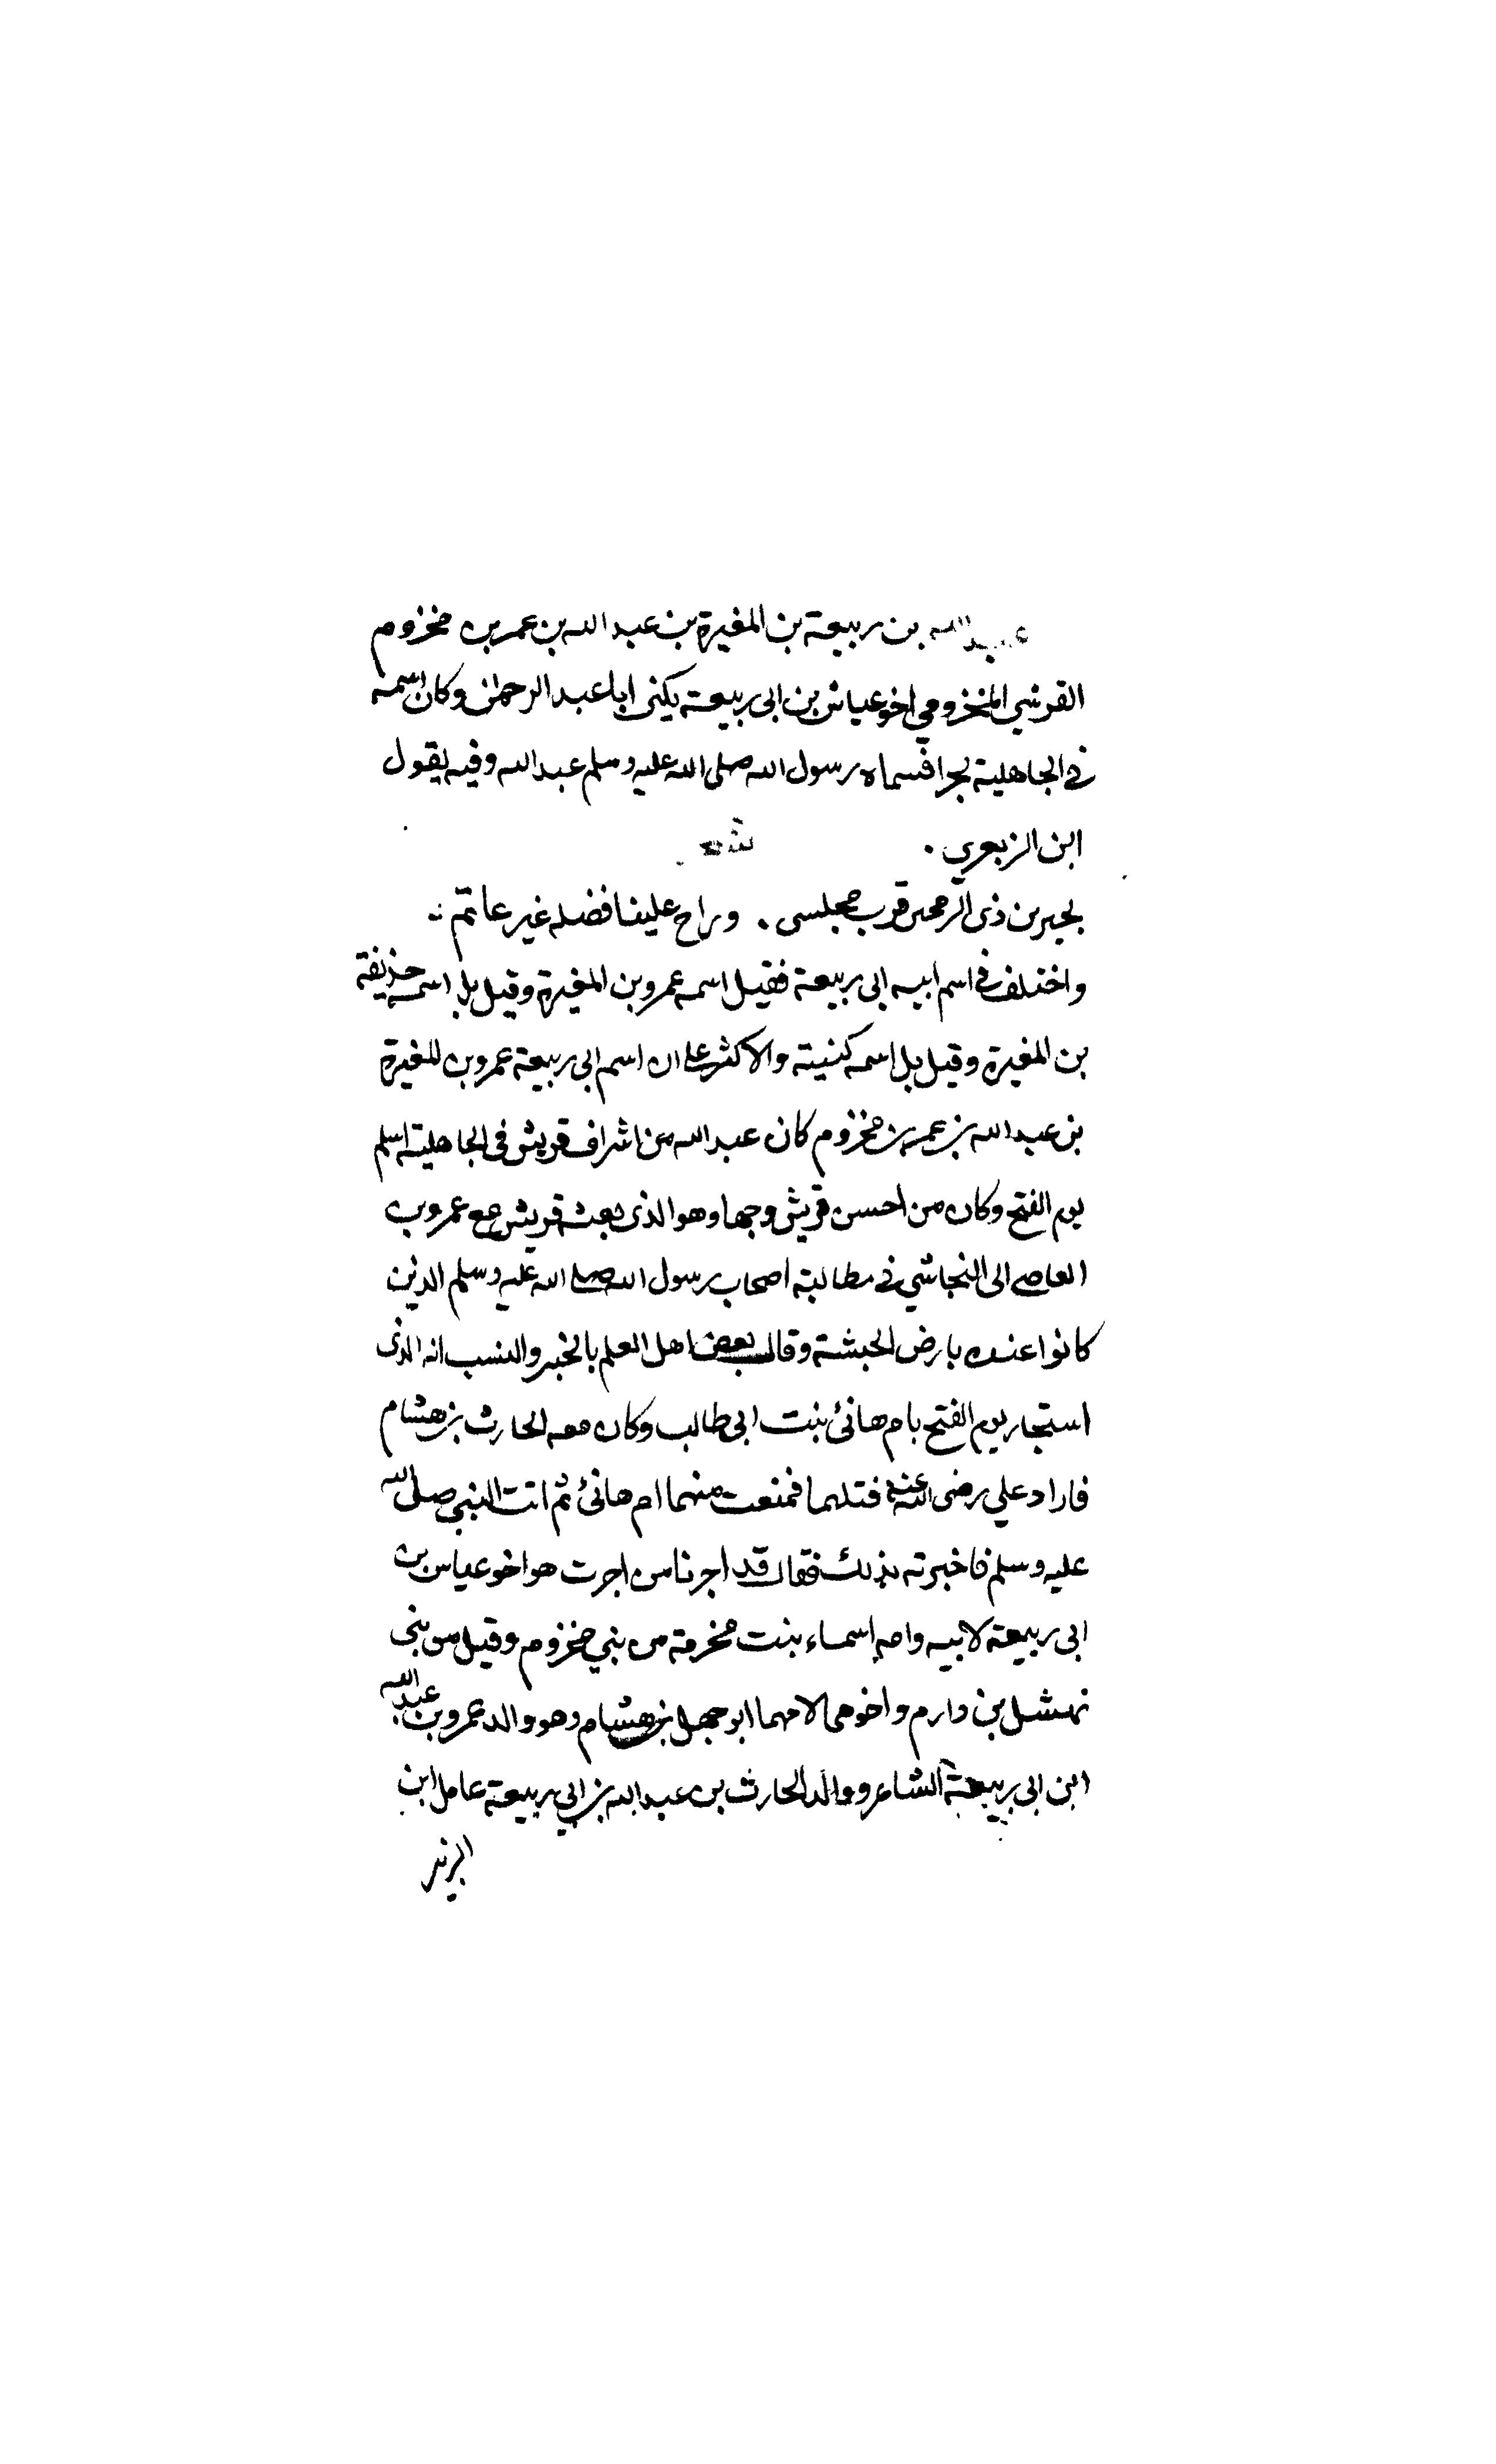 عبد الله بن ربيعة بن المغيرة بن عبد الله بن عمر بن مخزوم
القرشي المخزومي اخو عياش بن ابى ربيعة يكنى ابا عبد الرحمان وكان اسمه
فى الجاهلية بجرا فسماه رسول الله صلى الله عليه وسلم عبد الله وفيه يقول
ابن الزبعري .
بجير بن ذى الرمحين قرب مجلسى . وراح علينا فضله غير عاتم
واختلف فى اسم ابيه ابى ربيعة فقيل اسمه عمرو بن المغيرة وقيل بل اسمه حذيفة
بن المغيرة وقيل بل اسمه كنيته والاكثر على ان اسم ابى ربيعة عمرو بن المغيرة
بن عبد الله بن عمر بن مخزوم كان عبد الله من اشراف قريش فى الجاهلية اسلم
يوم الفتح وكان من احسن قريش وجها وهو الذى بعثته قريش مع عمرو بن
العاصى الى النجاشي فى مطالبة اصحاب رسول الله صلى الله عليه وسلم الذين
كانوا عنده بارض الحبشة وقال بعض اهل العلم بالخبر والنسب انه الذى
استجار يوم الفتح بام هانئ بنت ابى طالب وكان معه الحارث بن هشام
فاراد علي رضى الله عنه قتلهما فمنعت منهما ام هانئ ثم اتت النبي صلى الله
عليه وسلم فاخبرته بذلك فقال قد اجرنا من اجرت هو اخو عياش بن
ابى ربيعة لابيه وامه اسماء بنت مخرمة من بني مخزوم وقيل من بنى
نهشل بن دارم واخوهما لامهما ابو جهل بن هشام وهو والد عمرو بن عبد الله
ابن ابى ربيعة الشاعر ووالد الحارث بن عبد الله بن ابي ربيعة عامل ابن
الزبير